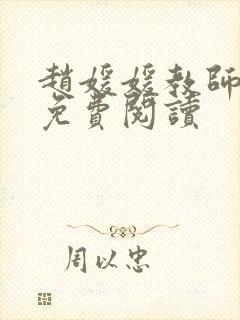 趙媛媛教師
免費閱讀
周以忠